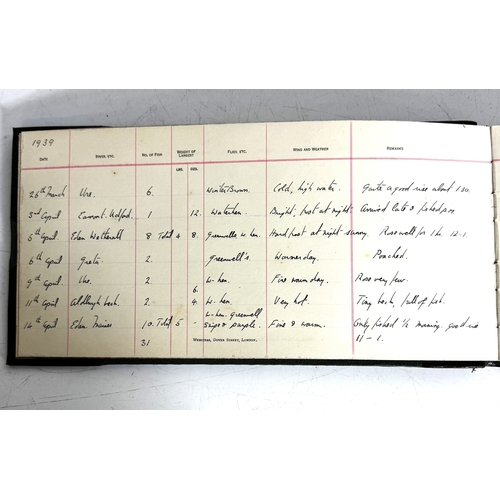 1939
DATE RIVER, ETC. NO. OF FISH WEIGHT OF LARGEST FLIES, ETC. WIND AND WEATHER REMARKS
LBS. OZS.
26th March Ure. 6. Winter Brown. Cold, high water. Quite a good rise about 1.30.
3rd April Eamont. Udford. 1 12. Waterhen. Bright, frost at night. Arrived late & fished p.m.
5th April Eden Wetherall 8 Total 4 8. Greenwells w. hen. Hard frost at night sunny. Rose well for 1 hr. 12-1.
6th April Greta. 2. Greenwell's Warmer day. Poached.
9th April Ure. 2. 6. W-hen. Fine warm day. Rose very few.
11th April Aldburgh beck. 2. 4. W-hen. Very hot. Tiny beck, full of fish.
14th April Eden 10. Total 5 - W-hen. Greenwell Snipe & purple. Fine & warm. Only fished ½ morning. good rise
31 11-1.
WEBSTERS, DOVER STREET, LONDON.